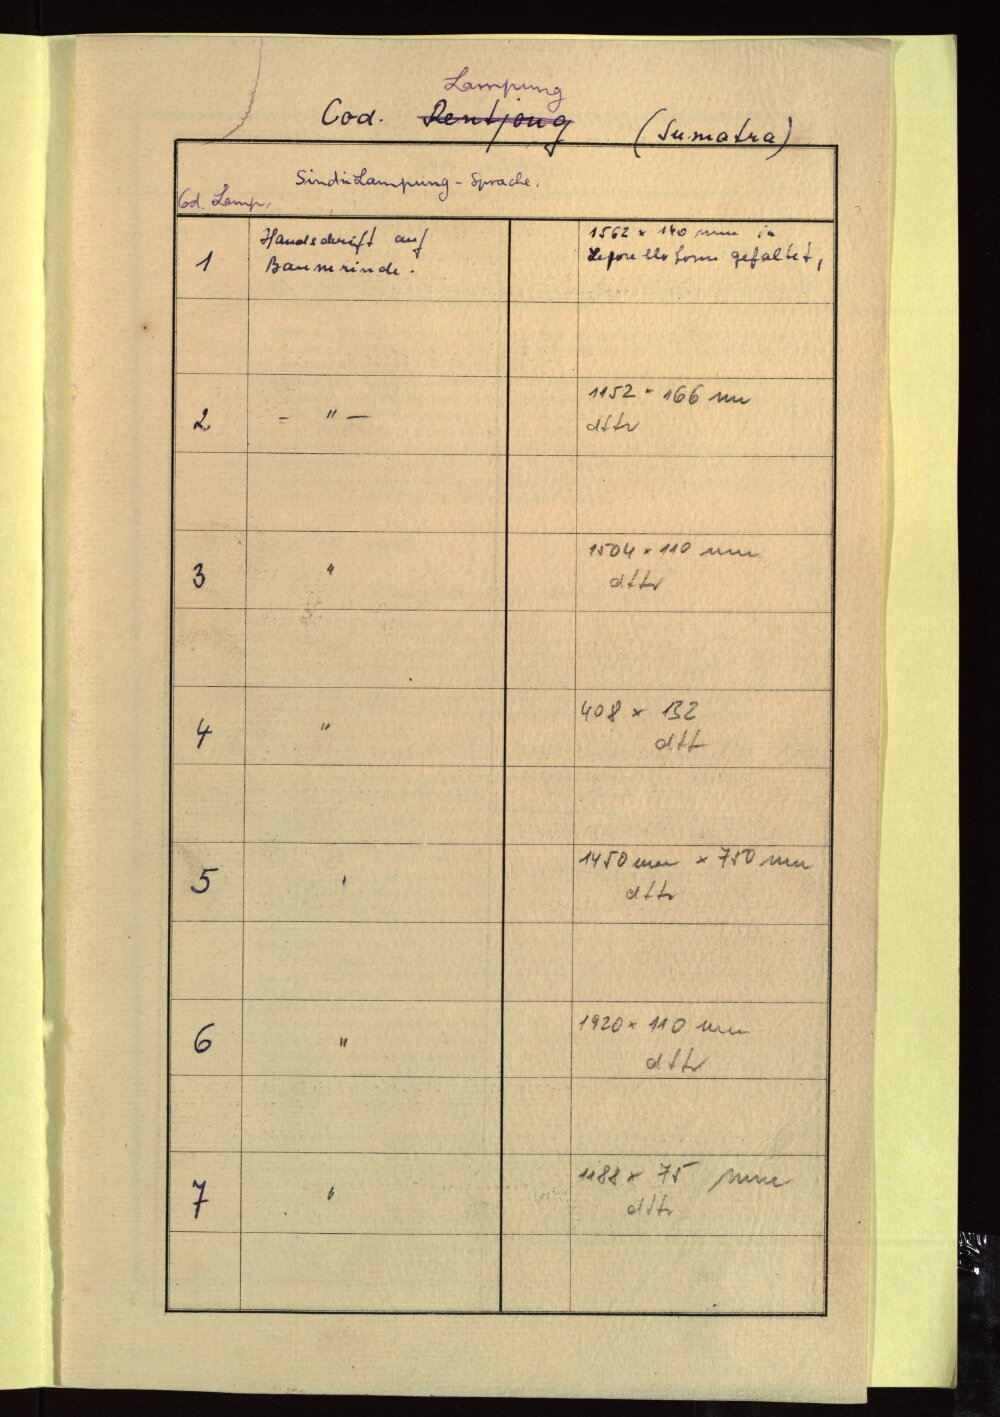 Lampung
Cod. Rentjong (Sumatra)
Sind in Lampung - Sprache.
Cod. Lamp.
1 Handschrift auf 1562 × 140 mm in
Baumrinde. Leporelloform gefaltet,
2 - " - 1152 × 166 mm
dtto
3 " 1504 × 110 mm
dtto
4 " 408 × 132
dtt
5 " 1450 mm × 750 mm
dtto
6 " 1920 × 110 mm
dtto
7 " 1188 × 75 mm
dtto